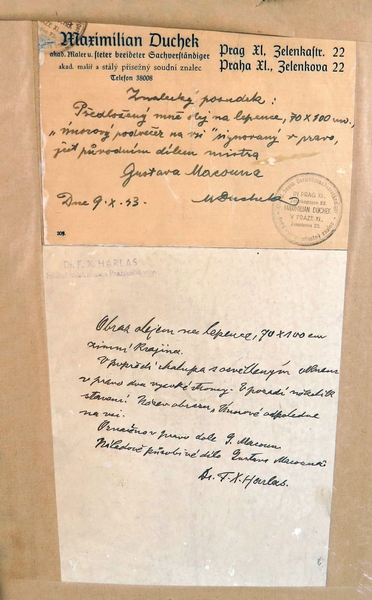 Maximilian Duchek
akad. Maler u. steter beeideter Sachverständiger
akad. malíř a stálý přísežný soudní znalec
Telefon 38008
Prag XI, Zelenkastr. 22
Praha XI., Zelenkova 22
Znalecký posudek:
Předložený mně olej na lepence, 70 x 100 cm.,
"Únorový podvečer na vsi" signovaný v pravo,
jest původním dílem mistra
Gustava Macouna
Dne 9.X.43. MDuchek
IN PRAG XI.
MAXIMILIAN DUCHEK
V PRAZE XI.
Dr. F. X. HARLAS
Obraz olejem na lepence, 70 x 100 cm
zimní krajina.
V popředí chalupa s osvětleným oknem
v pravo dva vysoké stromy. V pozadí několik
stavení. Název obrazu, Únorové odpoledne
na vsi.
Označeno v pravo dole G. Macoun
Náladově působivé dílo Gustava Macouna
Dr. F. X. Harlas.